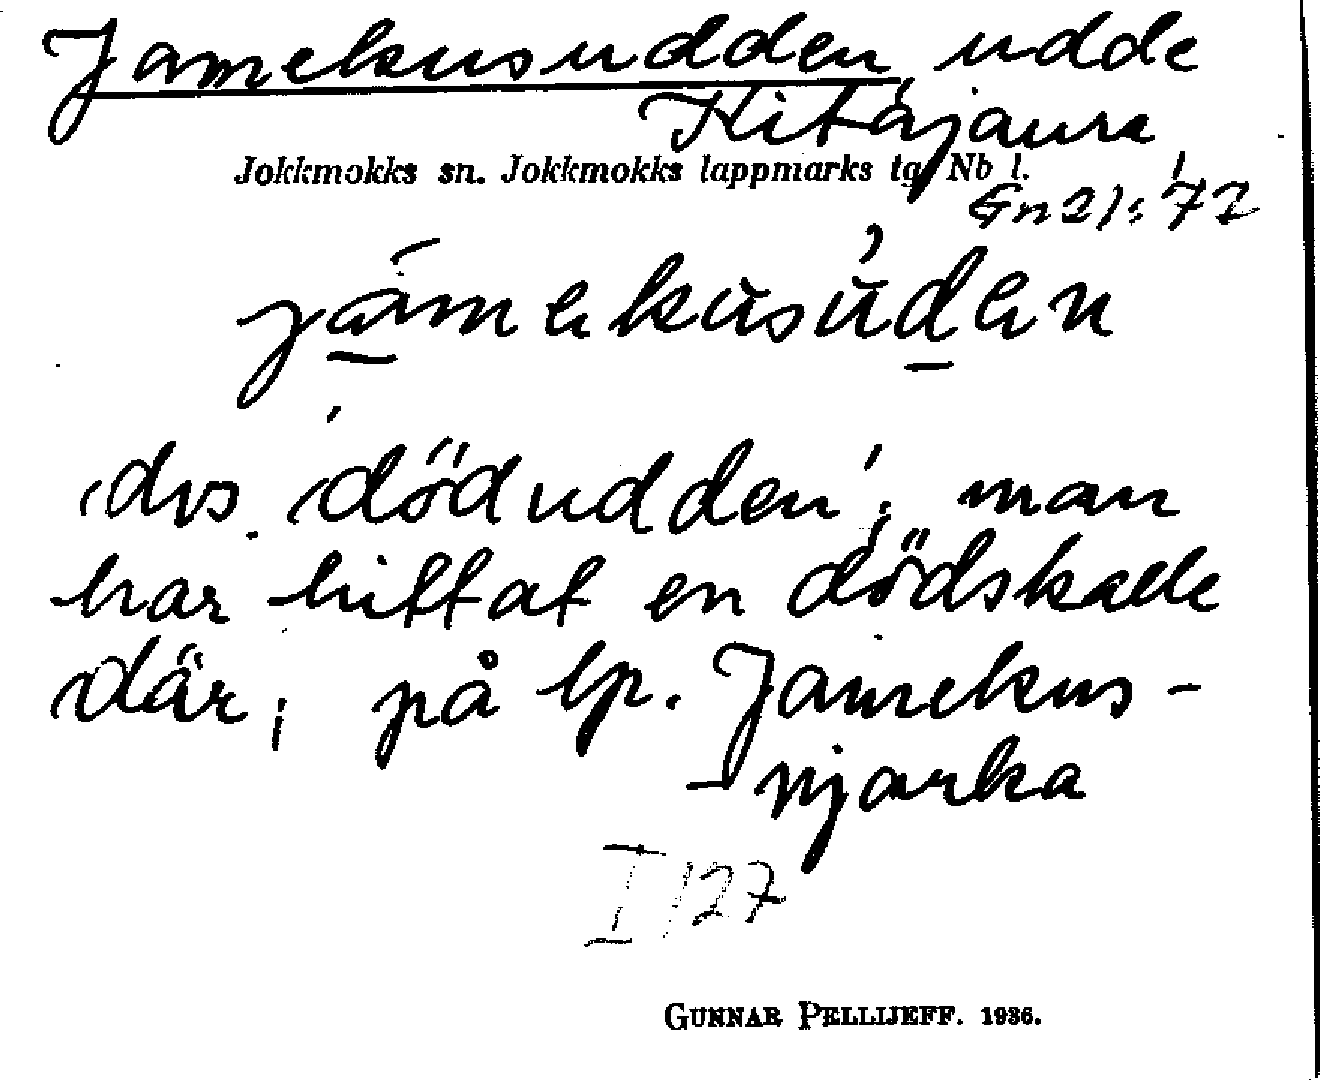 Jamekusudden, udde
Kitajaure
Jokkmokks sn. Jokkmokks lappmarks tg, Nb l.
Gn 21: 72
jamekusuden
dvs. 'dödudden'; man
har hittat en dödskalle
där; på lp. Jamekus-
-njarka
I 127
GUNNAR PELLIJEFF. 1936.